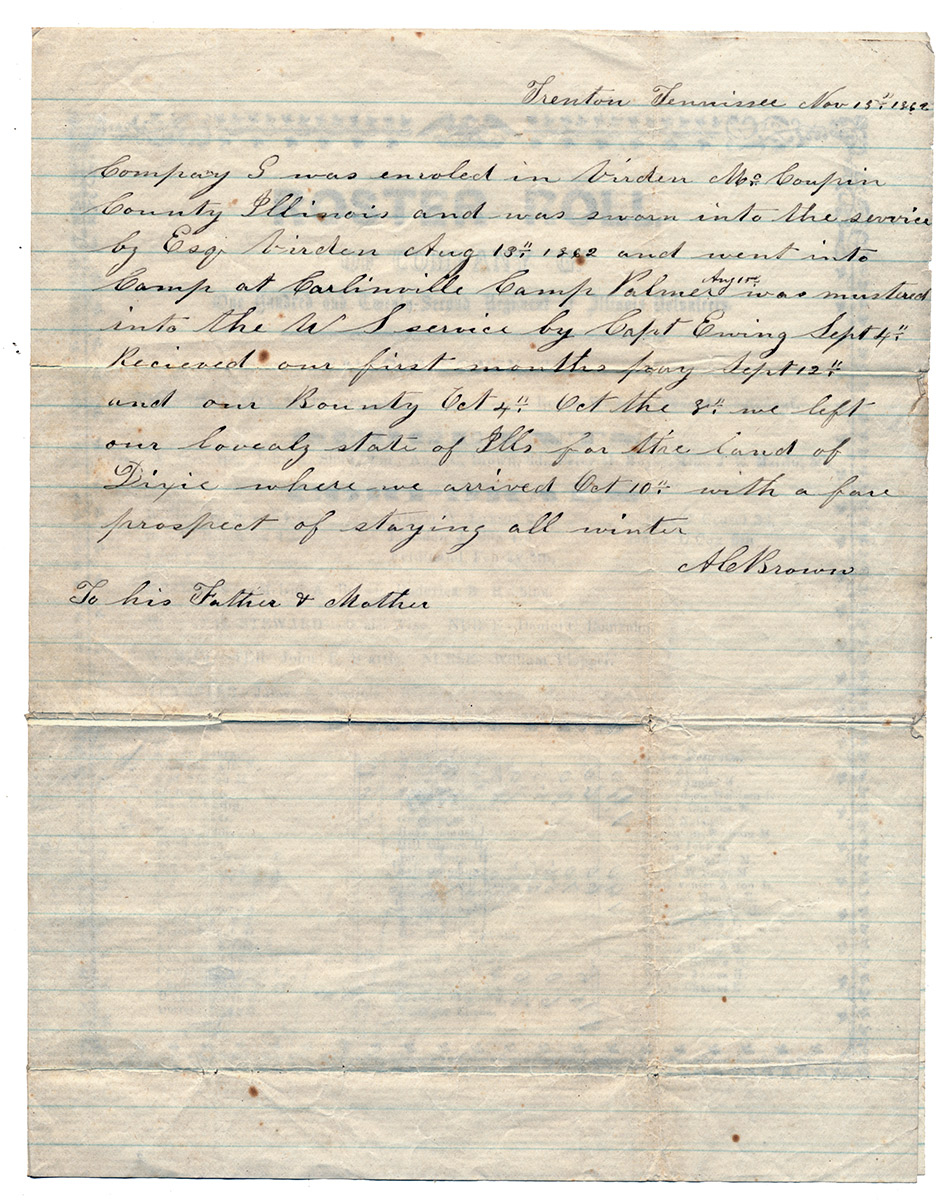 Trenton Tennissee Nov 13th 1862
Company G was enroled in Virden Mc Coupin
County Illinois and was sworn into the service
by Esq Virden Aug 13th 1862 and went into
Camp at Carlinville Camp Palmer Aug was mustered
into the U S service by Capt Ewing Sept 4th
Recieved our first months pay Sept 12th
and our Bounty Oct 4th Oct the 8th we left
our state of Ills for the land of
Dixie where we arrived Oct 10th with a fare
prospect of staying all winter
A C Brown
To his Father & Mother